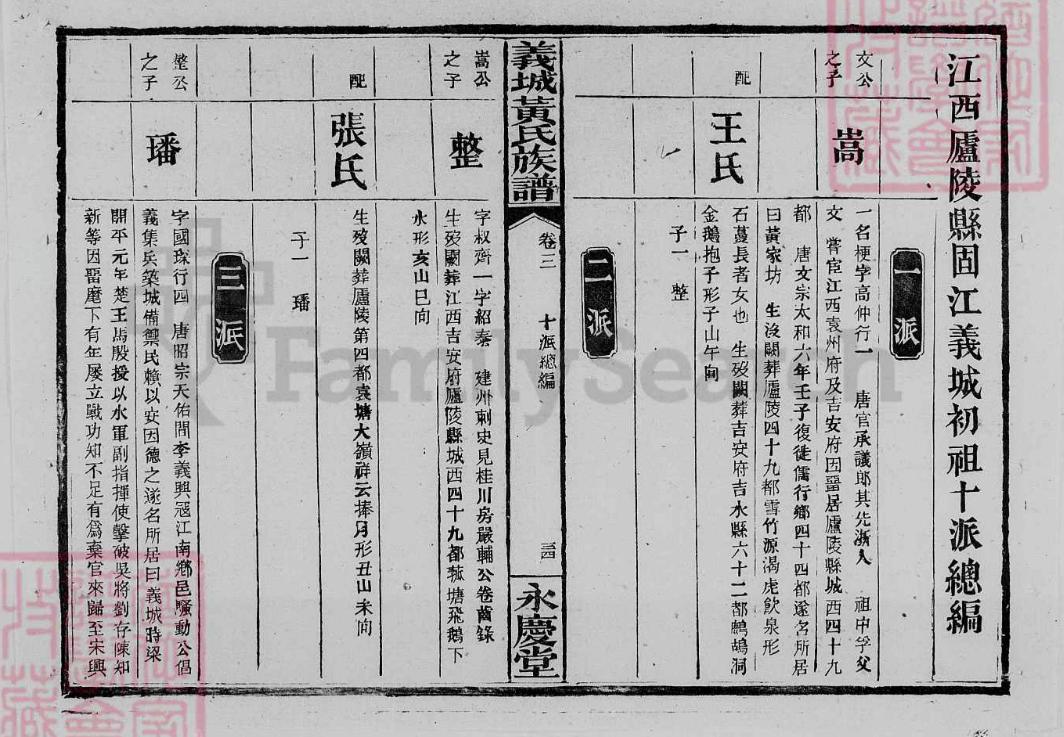 江西廬陵縣固江義城初祖十派總編
一派
文公之子
嵩
一名梗字高仲行一 唐官承議郎其先浙人 祖中孚父
文 嘗宦江西袁州府及吉安府因畱居廬陵縣城西四十九
都 唐文宗太和六年壬子復徙儒行鄉四十四都遂名所居
曰黃家坊 生沒闕葬廬陵四十九都雪竹源渴虎飲泉形
配
王氏
石蘲長者女也 生歿闕葬吉安府吉水縣六十二都鷓鴣洞
金鵝抱子形子山午向
子一 整
二派
嵩公之子
整
字叔齊一字紹泰 建州刺史見桂川房嚴輔公卷首錄
生歿闕葬江西吉安府廬陵縣城西四十九都塘飛鵝下
水形亥山巳向
配
張氏
生歿闕葬廬陵第四都袁塘大嶺祥云捧月形丑山未向
子一 璠
三派
整公之子
璠
字國琛行四 唐昭宗天佑間李義興冦江南鄉邑騷動公倡
義集兵築城備禦民賴以安因德之遂名所居曰義城時梁
開平元年楚王馬殷授以水軍副指揮使擊破吳將劉存陳知
新等因畱麾下有年屢立戰功知不足有爲棄官來歸至宋興
義城黃氏族譜
卷三
十派總編
永慶堂
FamilySearch